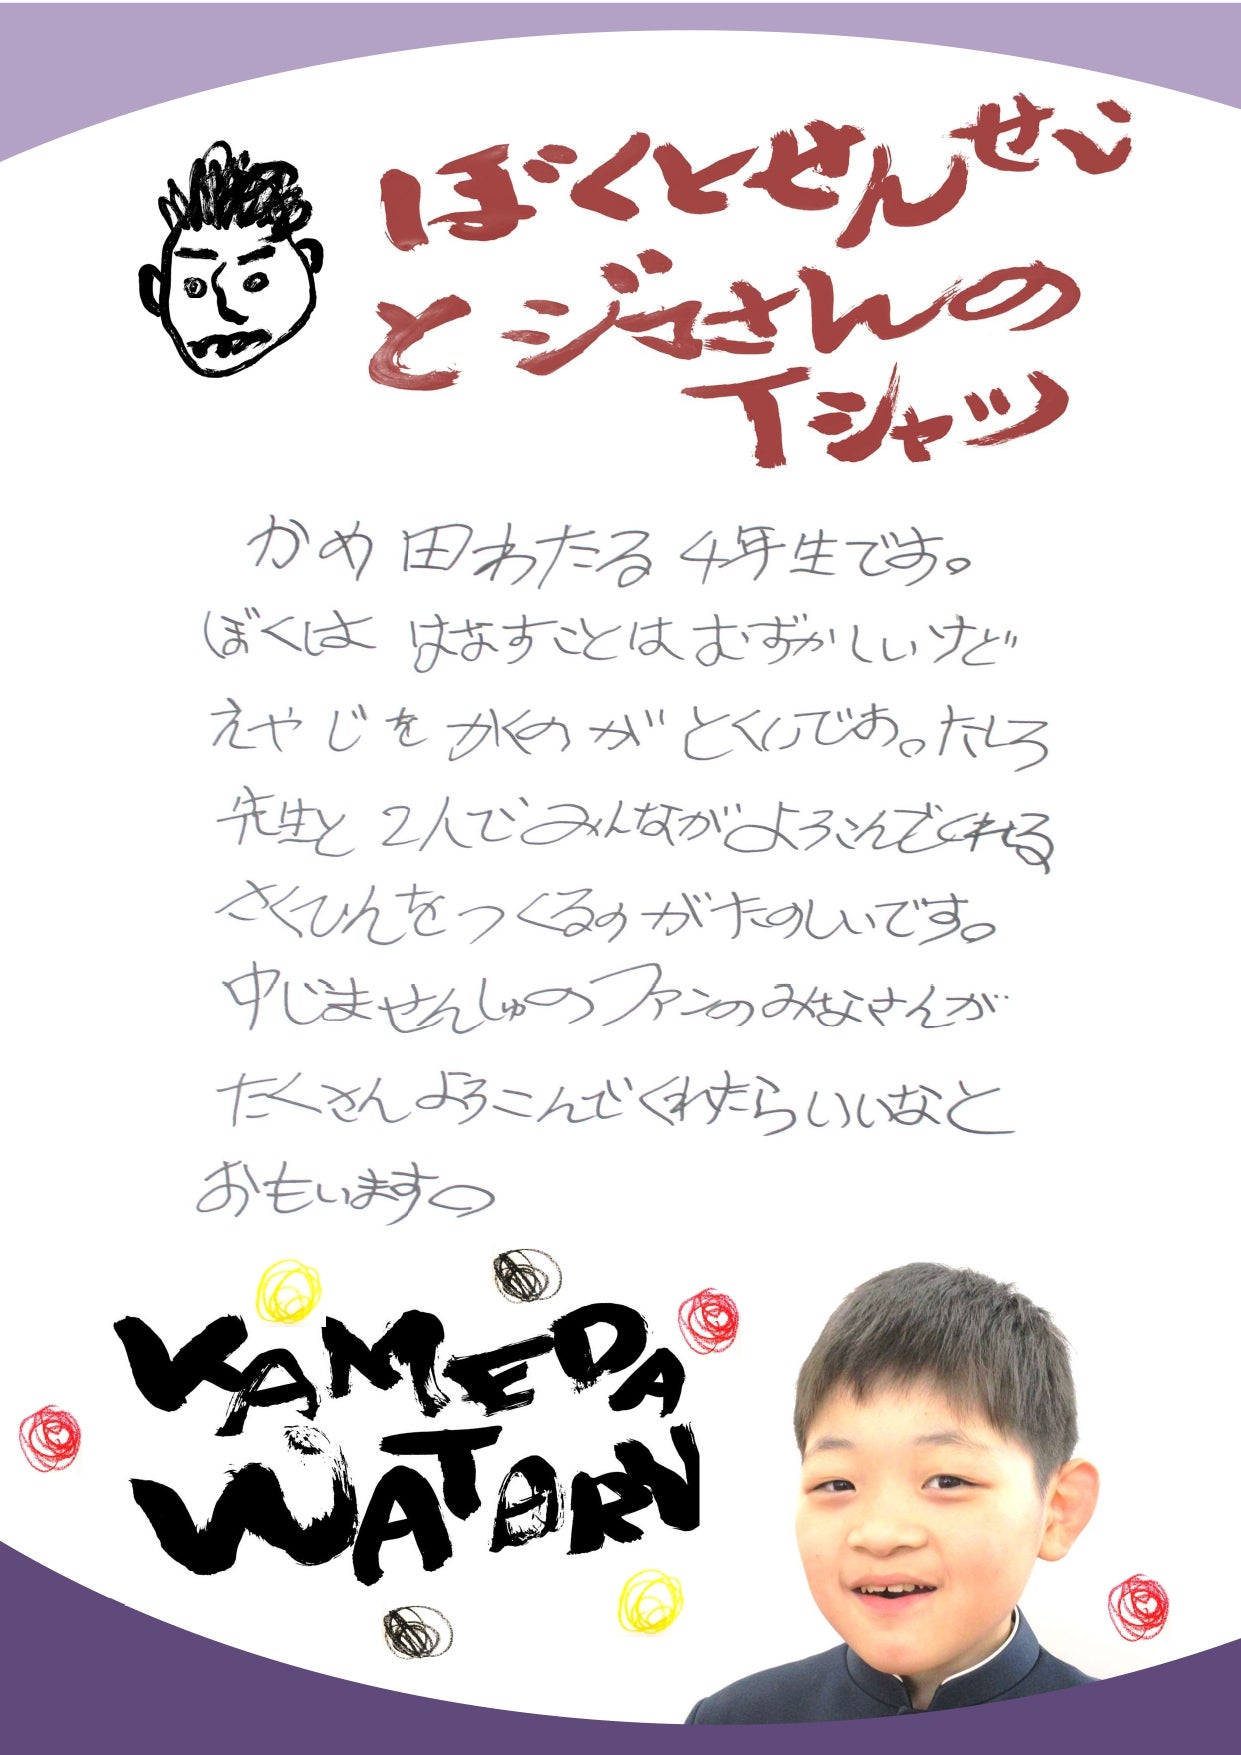 ぼくとせんせい
とジマさんの
Tシャツ
かめ田わたる 4年生です。
ぼくは はなすことは むずかしいけど
えやじを かくのが とくいです。たしろ
先生と 2人で みんなが よろこんでくれる
さくひんを つくるの がたのしいです。
中じませんしゅの ファンのみなさんが
たくさん よろこんでくれたらいいなと
おもいます。
KAMEDA
WATARU